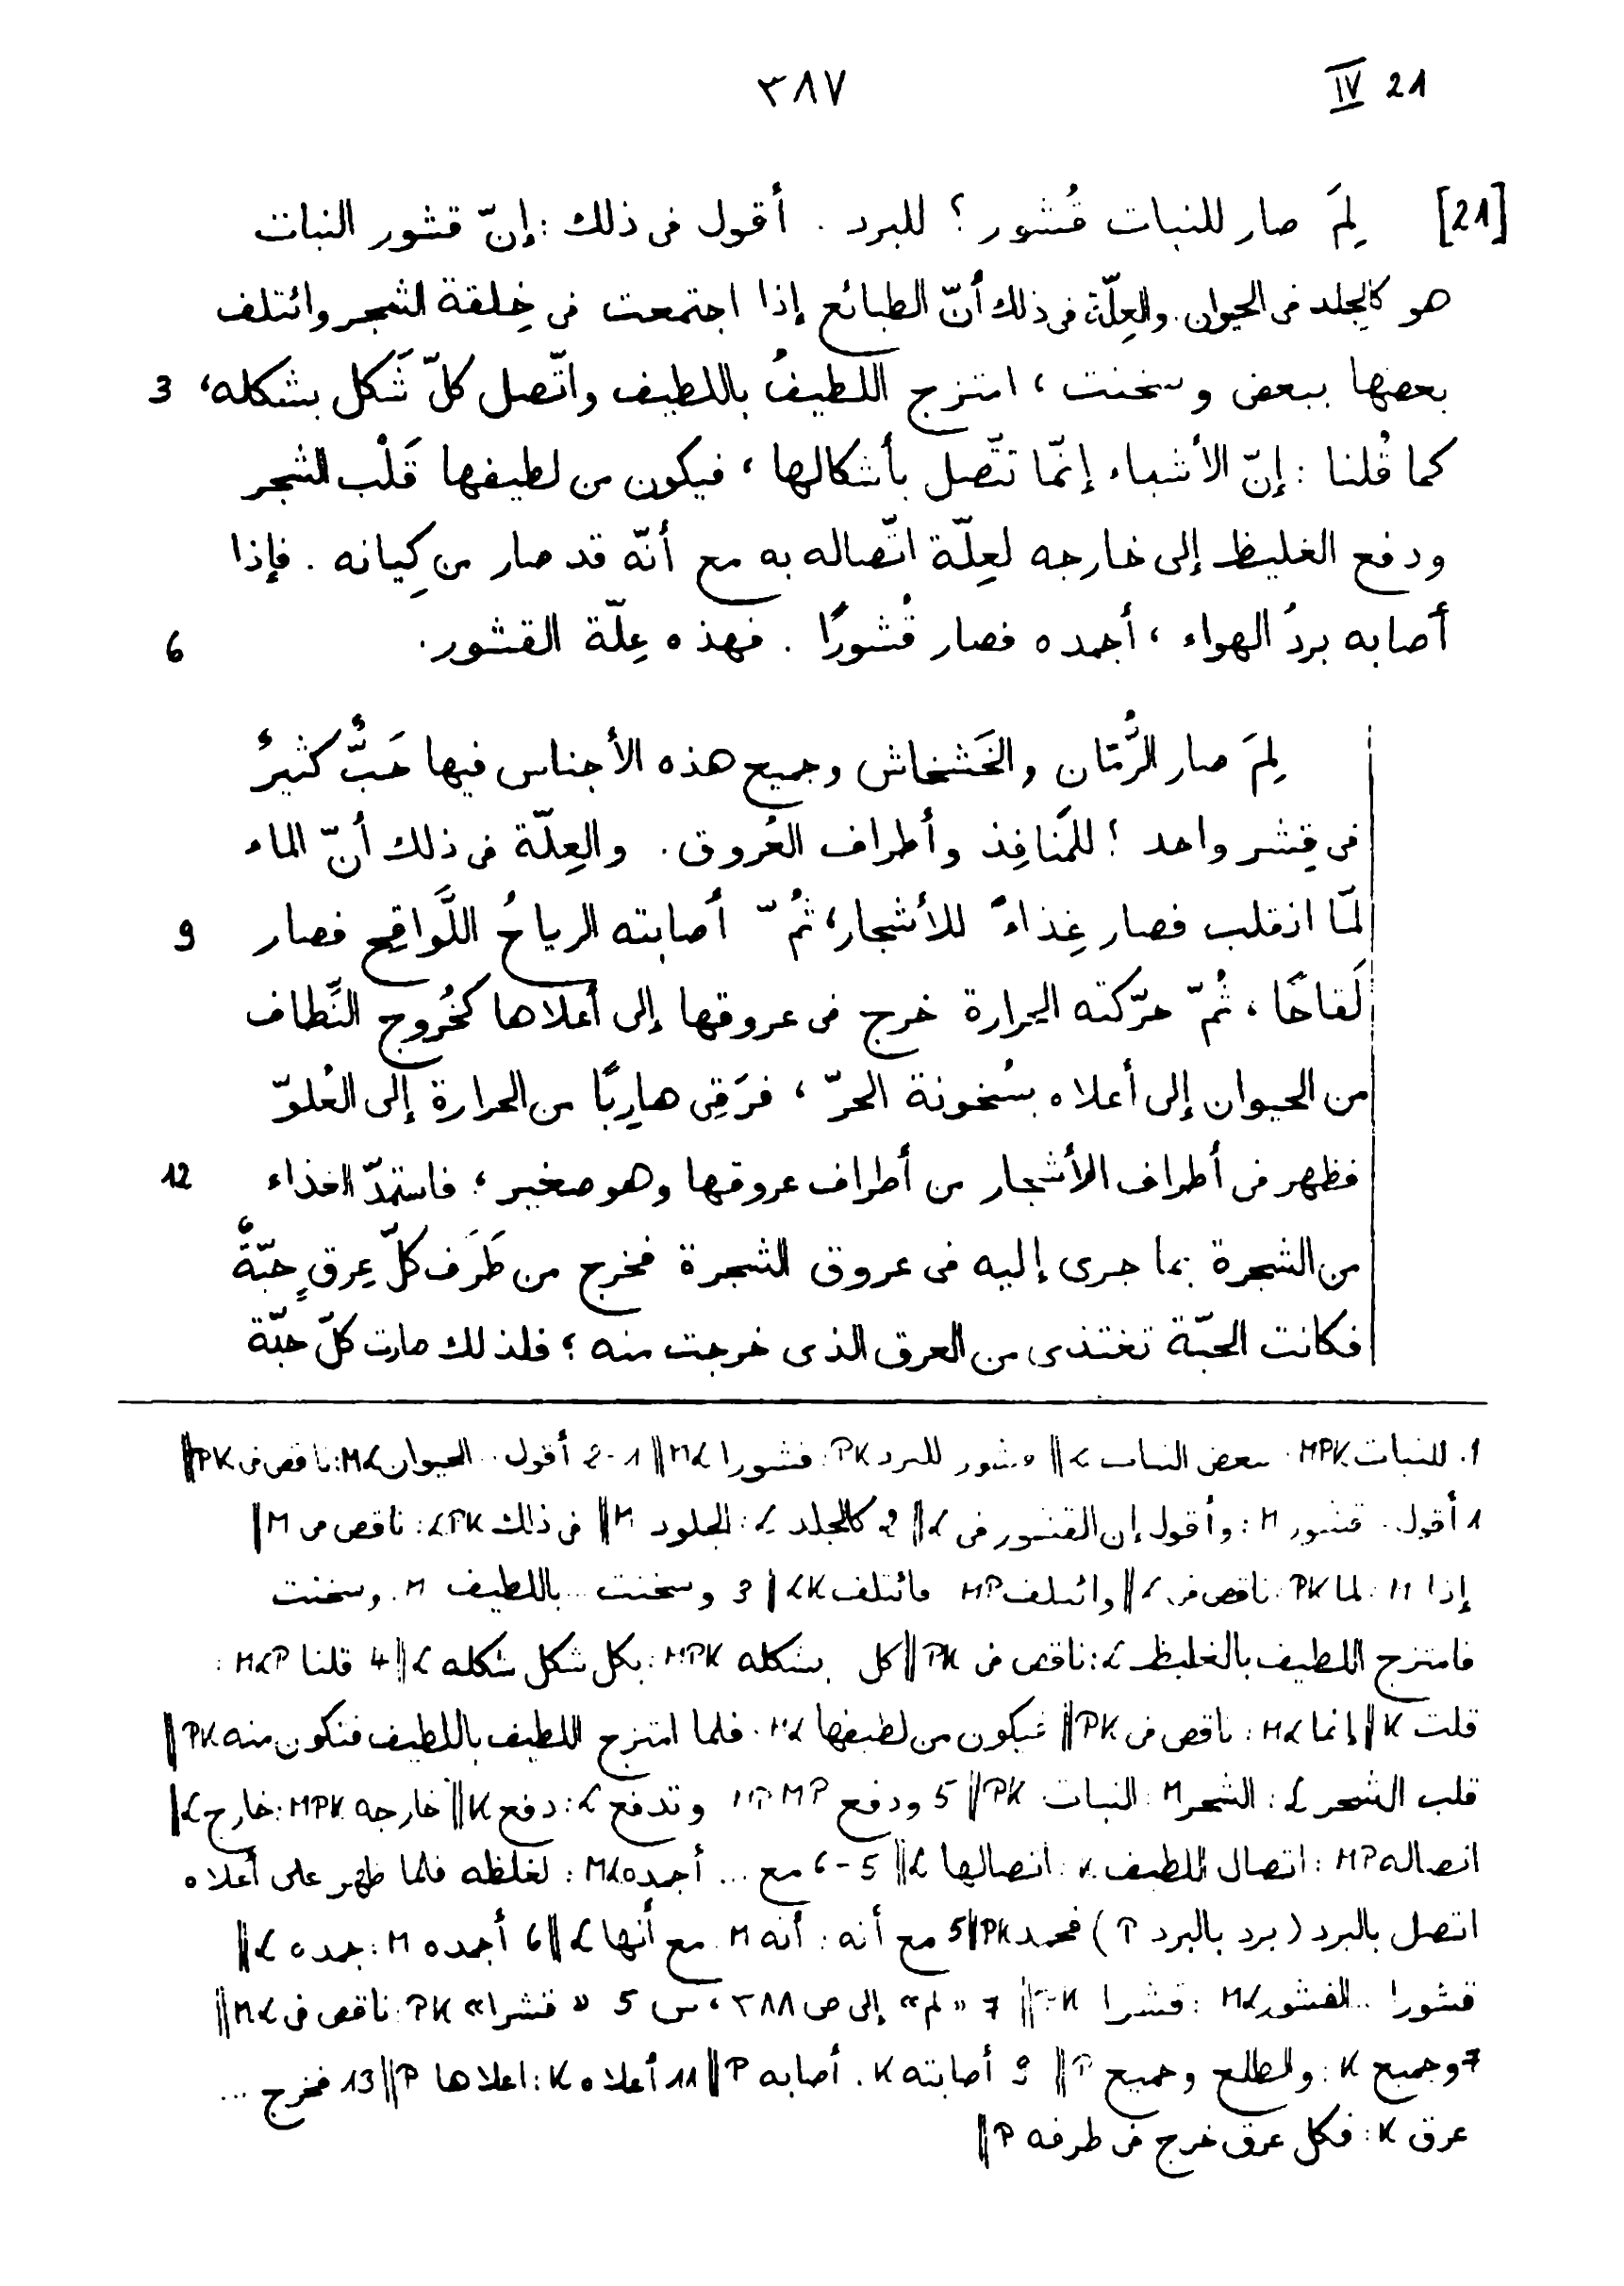 IV 21 ٣٨٧
[21] لِمَ صار للنبات قُشور ؟ للبرد . أقول فى ذلك : إنّ قشور النبات
هو كالجِلد فى الحيوان . والعِلّة فى ذلك أنّ الطبائع إذا اجتمعت فى خِلقة الشجر وائتلف
بعضها ببعض وسخنت ، امتزج اللطيفُ باللطيف واتّصل كلّ شَكل بشكله ، 3
كما قُلنا : إنّ الأشياء إنّما تتّصل بأشكالها ، فيكون من لطيفها قَلْب الشجر
ودفع الغليظ إلى خارجه لعِلّة اتّصاله به مع أنّه قد صار من كِيانه . فإذا
أصابه بردُ الهواء ، أجمده فصار قُشورًا . فهذه عِلّة القشور . 6
لِمَ صار الرُّمّان والخَشخاش وجميع هذه الأجناس فيها حَبٌّ كثيرٌ
فى قِشر واحد ؟ للمَنافِذ وأطراف العُروق . والعِلّة فى ذلك أنّ الماء
لمّا انقلب فصار غِذاءً للأشجار ، ثُمّ أصابته الرياحُ اللَّواقِح فصار 9
لَقاحًا ، ثُمّ حرّكته الحرارة خرج فى عروقها إلى أعلاها كخُروج النِّطاف
من الحيوان إلى أعلاه بسُخونة الحرّ ، فرَقِى هارِبًا من الحرارة إلى العُلوّ
فظهر فى أطراف الأشجار من أطراف عروقها وهو صغير ؛ فاستمدّ الغذاء 12
من الشجرة بما جرى إليه فى عروق الشجرة فخرج من طَرَف كلّ عِرقٍ حَبّةٌ
فكانت الحبّة تغتذى من العرق الذى خرجت منه ؛ فلذلك صارت كلّ حبّة
1. للنبات MPK : بعض النبات L || قشور للبرد PK : قشورا ML || 1-2 أقول ... الحيوان ML : ناقص فى PK ||
1 أقول ... قشور M : وأقول إن القشور فى L || 2 كالجلد L : الجلود M || فى ذلك LPK : ناقص من M ||
إذا M : لما PK : ناقص فى L || وائتلف MP : فائتلف LK || 3 وسخنت ... باللطيف M : وسخنت
فامتزج اللطيف بالغليظ L : ناقص فى PK || كل ... بشكله MPK : بكل شكل شكله L || 4 قلنا MLP :
قلت K || إنما ML : ناقص فى PK || فيكون من لطيفها ML : فلما امتزج اللطيف باللطيف فتكون منه PK ||
قلب الشجر L : الشجر M : النبات PK || 5 ودفع MP : وتدفع L : دفع K || خارجه MPK : خارج L ||
اتصاله MP : اتصال اللطيف K : اتصالها L || 5-6 مع ... أجمده ML : لغلظه فلما ظهر على أعلاه
اتصل بالبرد (برد بالبرد P) فجمد PK || 5 مع أنه : أنه M : مع أنها L || 6 أجمده M : جمده L ||
قشورا ... القشور ML : قشرا PK || 7 «لم» إلى ص ٣٨٨ ، س 5 «قشرا» PK : ناقص فى ML ||
7 وجميع K : والطلع وجميع P || 9 أصابته K : أصابه P || 11 أعلاه K : اعلاها P || 13 فخرج ...
عرق K : فكل عرق خرج فى طرفه P ||